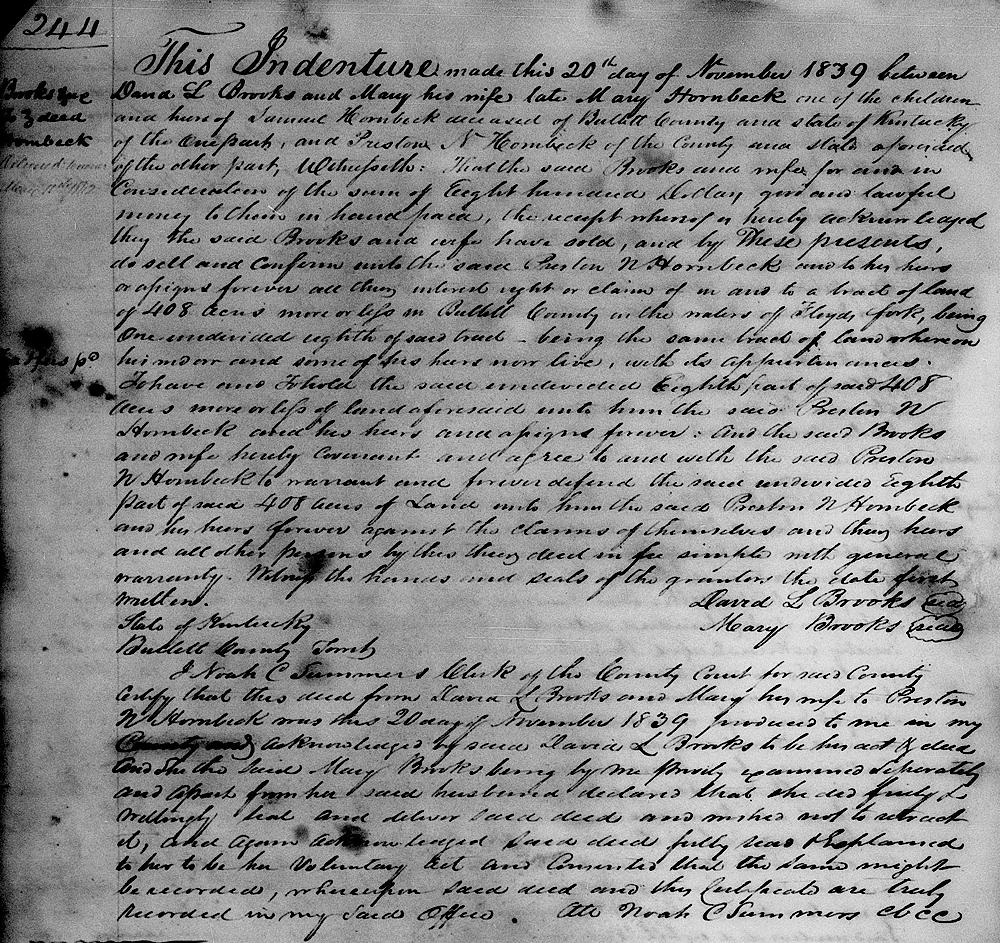 244
This Indenture made this 20th day of November 1839 between
David L Brooks and Mary his wife late Mary Hornbeck one of the children
and heirs of Samuel Hornbeck deceased of Bullitt County and state of Kentucky
of the one part, and Preston N Hornbeck of the County and state aforesaid
of the other part, Witnesseth: That the said Brooks and wife for and in
Consideration of the sum of Eight hundred Dollars good and lawful
money to them in hand paid, the receipt whereof is hereby acknowledged
they the said Brooks and wife have sold, and by These presents,
do sell and Confirm unto the said Preston N Hornbeck and to his heirs
or assigns forever all their interest right or claim of in and to a tract of land
of 408 acres more or less in Bullitt County on the waters of Floyds fork, being
One undivided eighth of said tract - being the same tract of land whereon
his widow and some of his heirs now live, with its appurtenances.
To have and To hold the said undivided Eighth part of said 408
acres more or less of land aforesaid unto him the said Preston N
Hornbeck and his heirs and assigns forever: And the said Brooks
and wife hereby Covenant and agree to and with the said Preston
N Hornbeck to warrant and forever defend the said undivided Eighth
part of said 408 acres of Land unto him the said Preston N Hornbeck
and his heirs forever against the claims of themselves and their heirs
and all other persons by this their deed in fee simple with general
warranty. Witness the hands and seals of the grantors the date first
written.
David L Brooks seal
Mary Brooks seal
State of Kentucky
Bullitt County Sct
I Noah C Summers Clerk of the County Court for said County
Certify that this deed from David L Brooks and Mary his wife to Preston
N Hornbeck was this 20 day of November 1839 produced to me in my
County and acknowledged by said David L Brooks to be his act & deed
And she the said Mary Brooks being by me privily examined seperately
and apart from her said husband declared that she did freely &
willingly seal and deliver said deed and wished not to retract
it, and again acknowledged said deed fully read & explained
to her to be her voluntary act and Consented that the same might
be recorded, whereupon said deed and this Certificate are truly
recorded in my said Office. Att Noah C Summers cbcc
Brooks &c
to } deed
Hornbeck